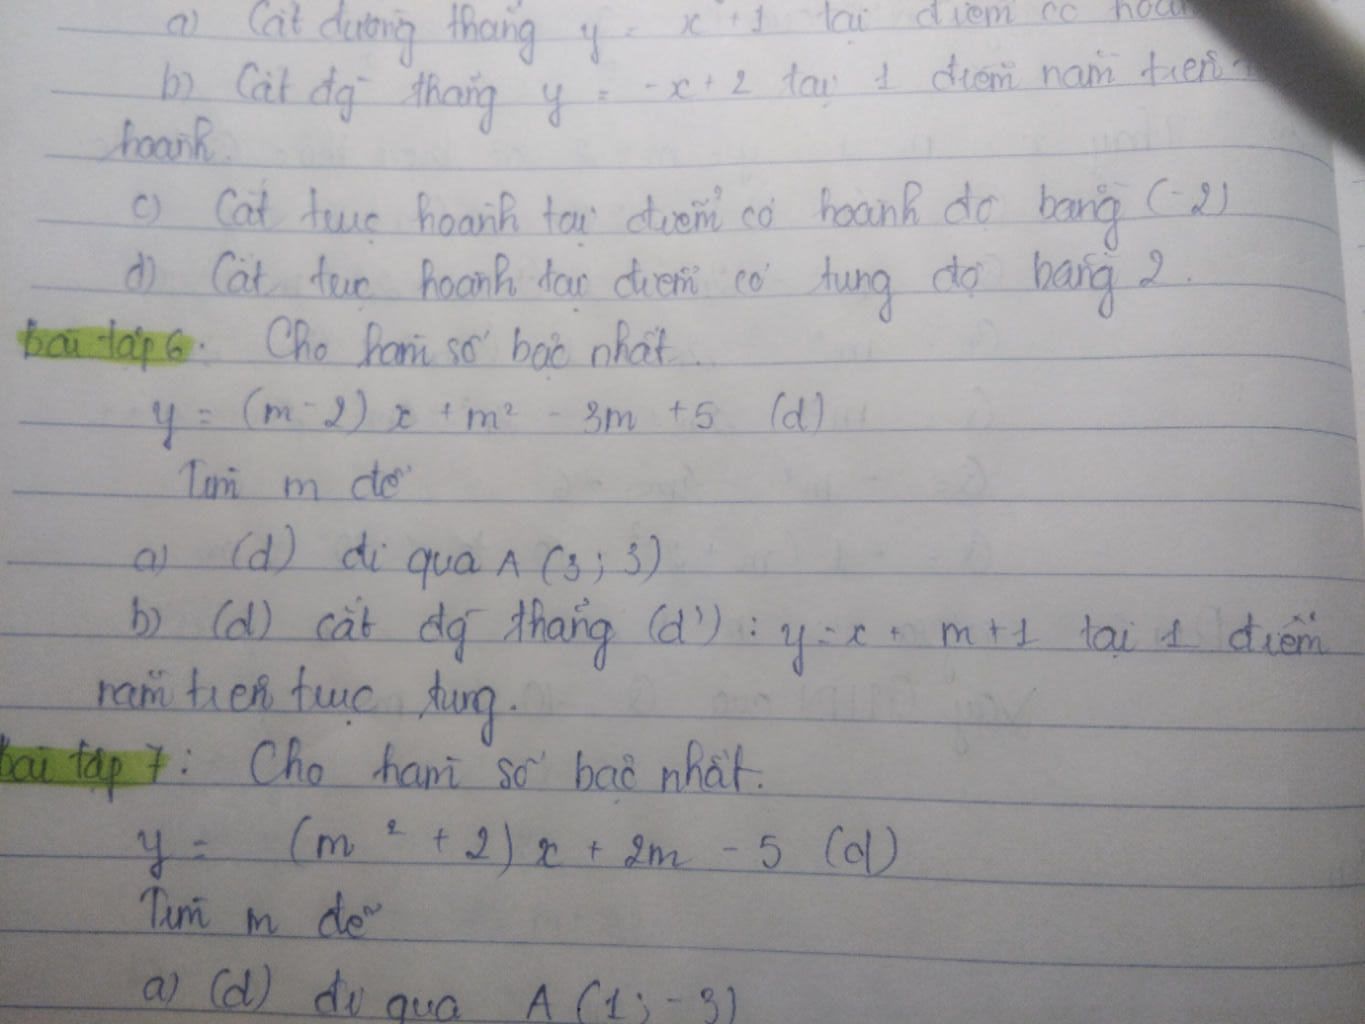 a) Cắt đường thẳng y = x + 1 tại điểm có hoà
b) Cắt đg thẳng y = -x + 2 tại 1 điểm nằm trên
hoành.
c) Cắt trục hoành tại điểm có hoành độ bằng (-2)
d) Cắt trục hoành tại điểm có tung độ bằng 2.
bài tập 6. Cho hàm số bậc nhất
y = (m - 2) x + m² - 3m + 5 (d)
Tìm m để
a) (d) đi qua A (3 ; 3)
b) (d) cắt đg thẳng (d') : y = x + m + 1 tại 1 điểm
nằm trên trục tung.
bài tập 7 : Cho hàm số bậc nhất.
y = (m² + 2) x + 2m - 5 (d)
Tìm m để
a) (d) đi qua A (1 ; -3)